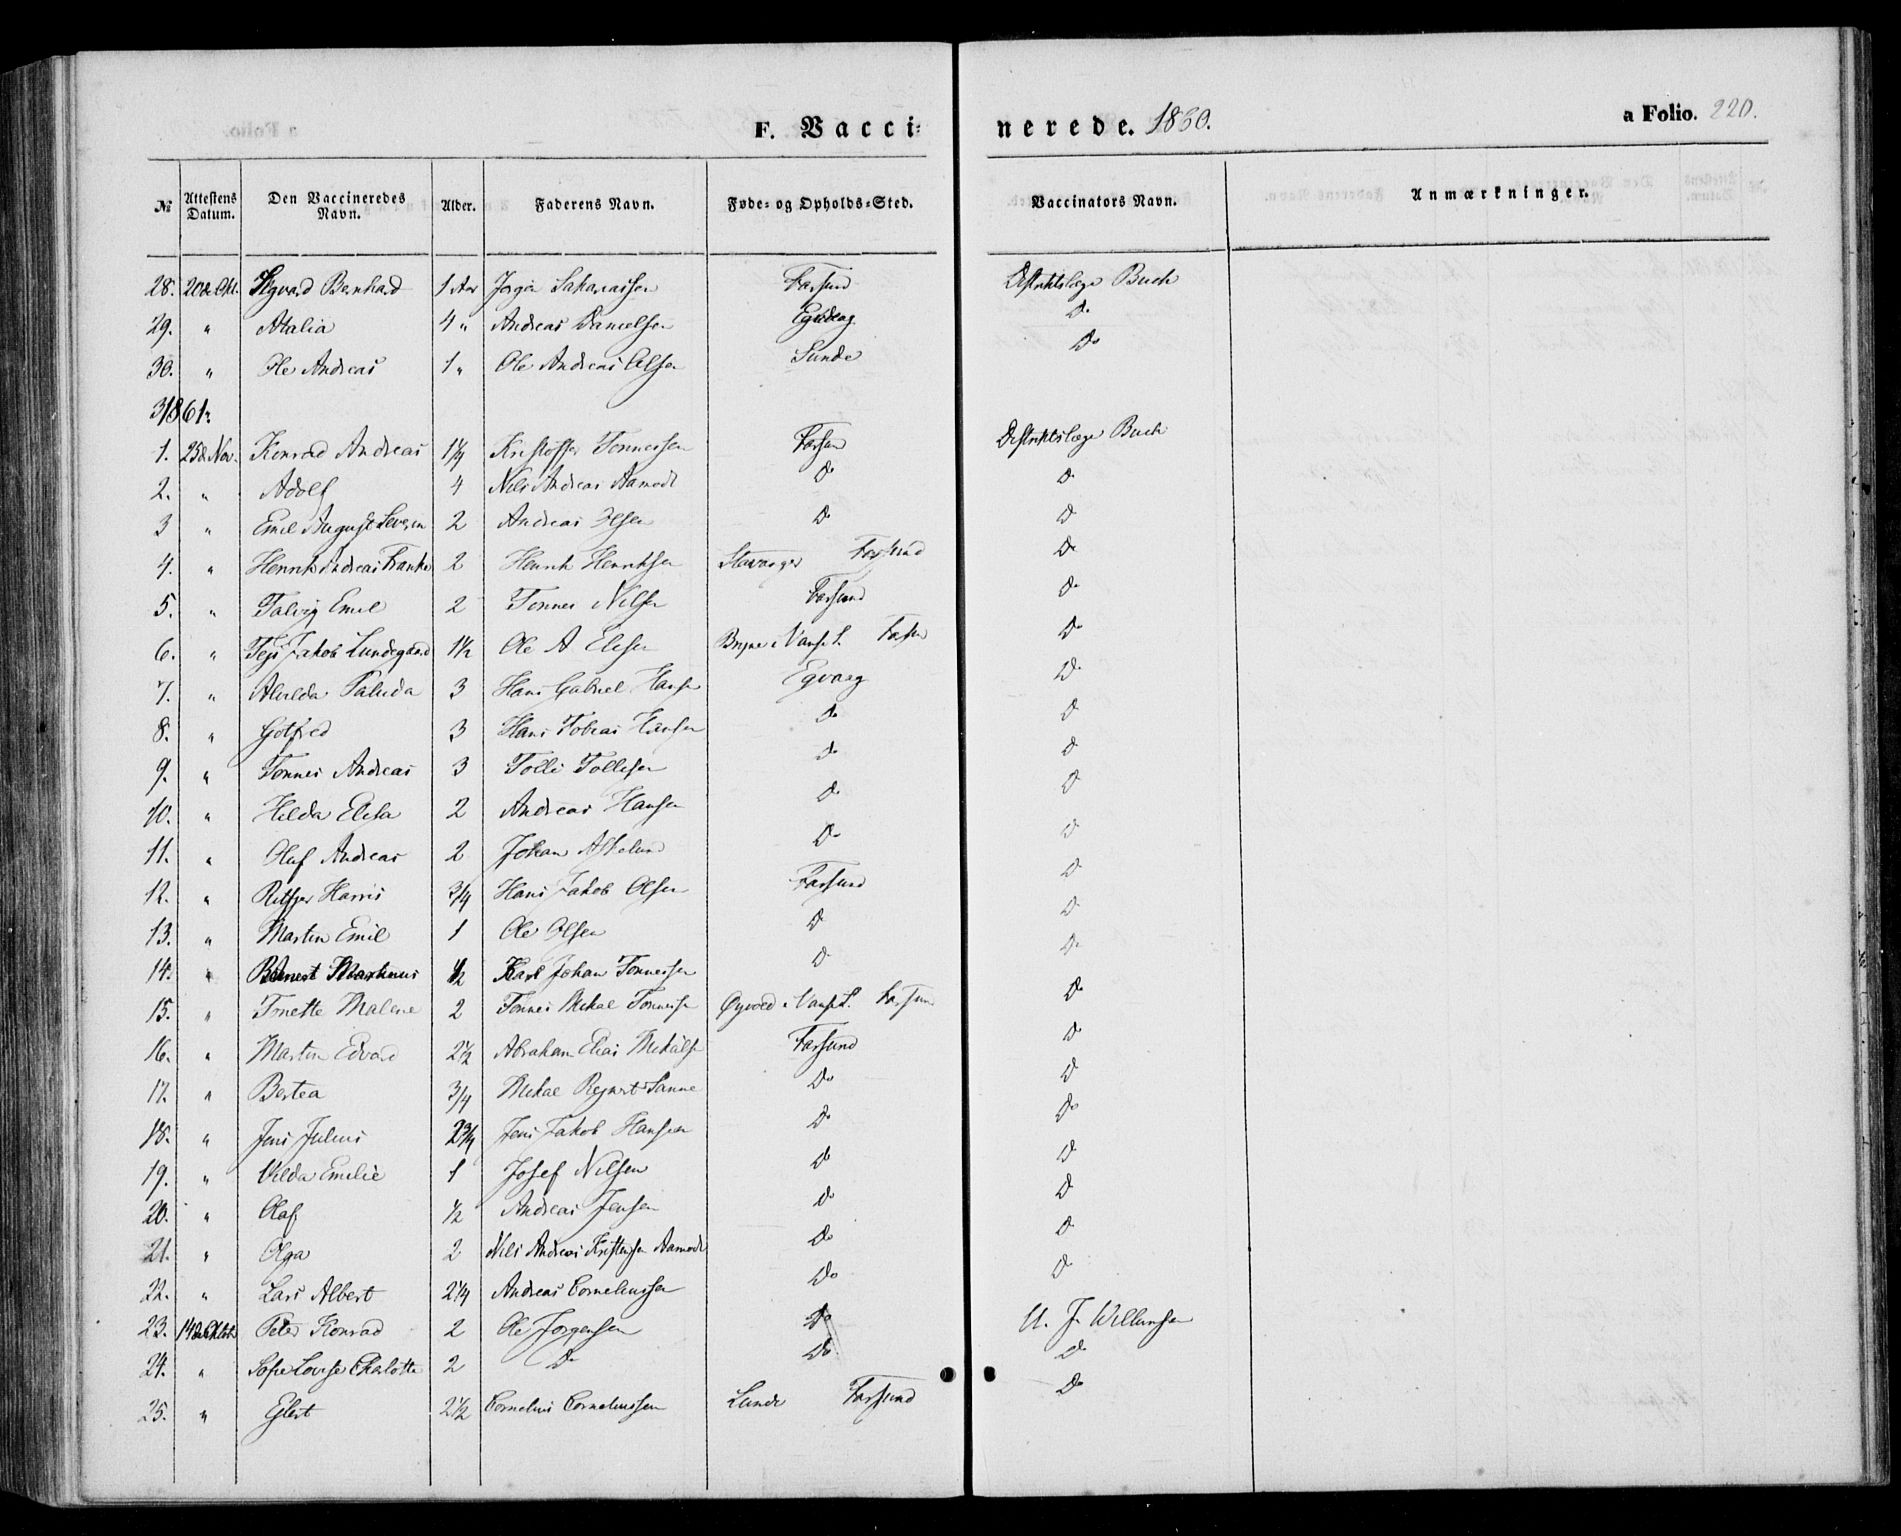 F. Vacci= nerede. 1860. a Folio. 220.
№ Attestens Datum. Den Vaccineredes Navn. Alder. Faderens Navn. Føde= og Opholds=Sted. Vaccinators Navn. Anmærkninger.
28. 20de Okt. Sigvard Bernhard 1 Aar Jørgen Sakariassen Farsund Distriktslæge Buch
29. " Atalia 4 " Andreas Danielsen Egvaag Do
30. " Ole Andreas 1 " Ole Andreas Olsen Sunde Do
1861.
1. 25de Nov. Konrad Andreas 1¼ Kristoffer Tønnessen Farsund Distriktslæge Buch
2. " Adolf 4 Nils Andreas Aamodt Do Do
3 " Emil August Severin 2 Andreas Olsen Do Do
4. " Henrik Andreas Franke 2 Henrik Henriksen Stavanger Farsund Do
5. " Emil 2 Tønnes Nilsen Farsund Do
6. " Jakob Lundegaard 1½ Ole A Elesen Vanse S. Farsund Do
7. " Alvilda 3 Hans Gabriel Hansen Egvaag Do
8. " Gotfred 3 Hans Tobias Hansen Do Do
9. " Tønnes Andreas 3 Tolli Tollisen Do Do
10. " Hilda Elisa 2 Andreas Hansen Do Do
11. " Oluf Andreas 2 Johan Do Do
12. " Harris ¾ Hans Jakob Olsen Farsund Do
13. " Martin Emil 1 Ole Olsen Do Do
14. " Martinus ½ Karl Johan Tønnessen Do Do
15. " Tonette Malene 2 Tønnes Mikal Tønnessen Øyvold i Vanse S. Farsund Do
16. " Martin Edvard 2½ Abraham Elias Mikalsen Farsund Do
17. " Bertea ¾ Mikal Reinert Sanne Do Do
18. " Jens Julius 2¾ Jens Jakob Hansen Do Do
19. " Vilda Emilie 1 Josef Nilsen Do Do
20. " Olaf ½ Andreas Jensen Do Do
21. " Olga 2 Nils Andreas Kristensen Aamodt Do Do
22. " Lars Albert 2¼ Andreas Corneliussen Do Do
23. 14de Oktob. Peter Konrad 2 Ole Jørgensen Do U. J. Willumsen
24. " Sofie Lovise Charlotte 2 Do Do Do
25. " Eilert 2½ Cornelius Corneliussen Lunde Farsund Do